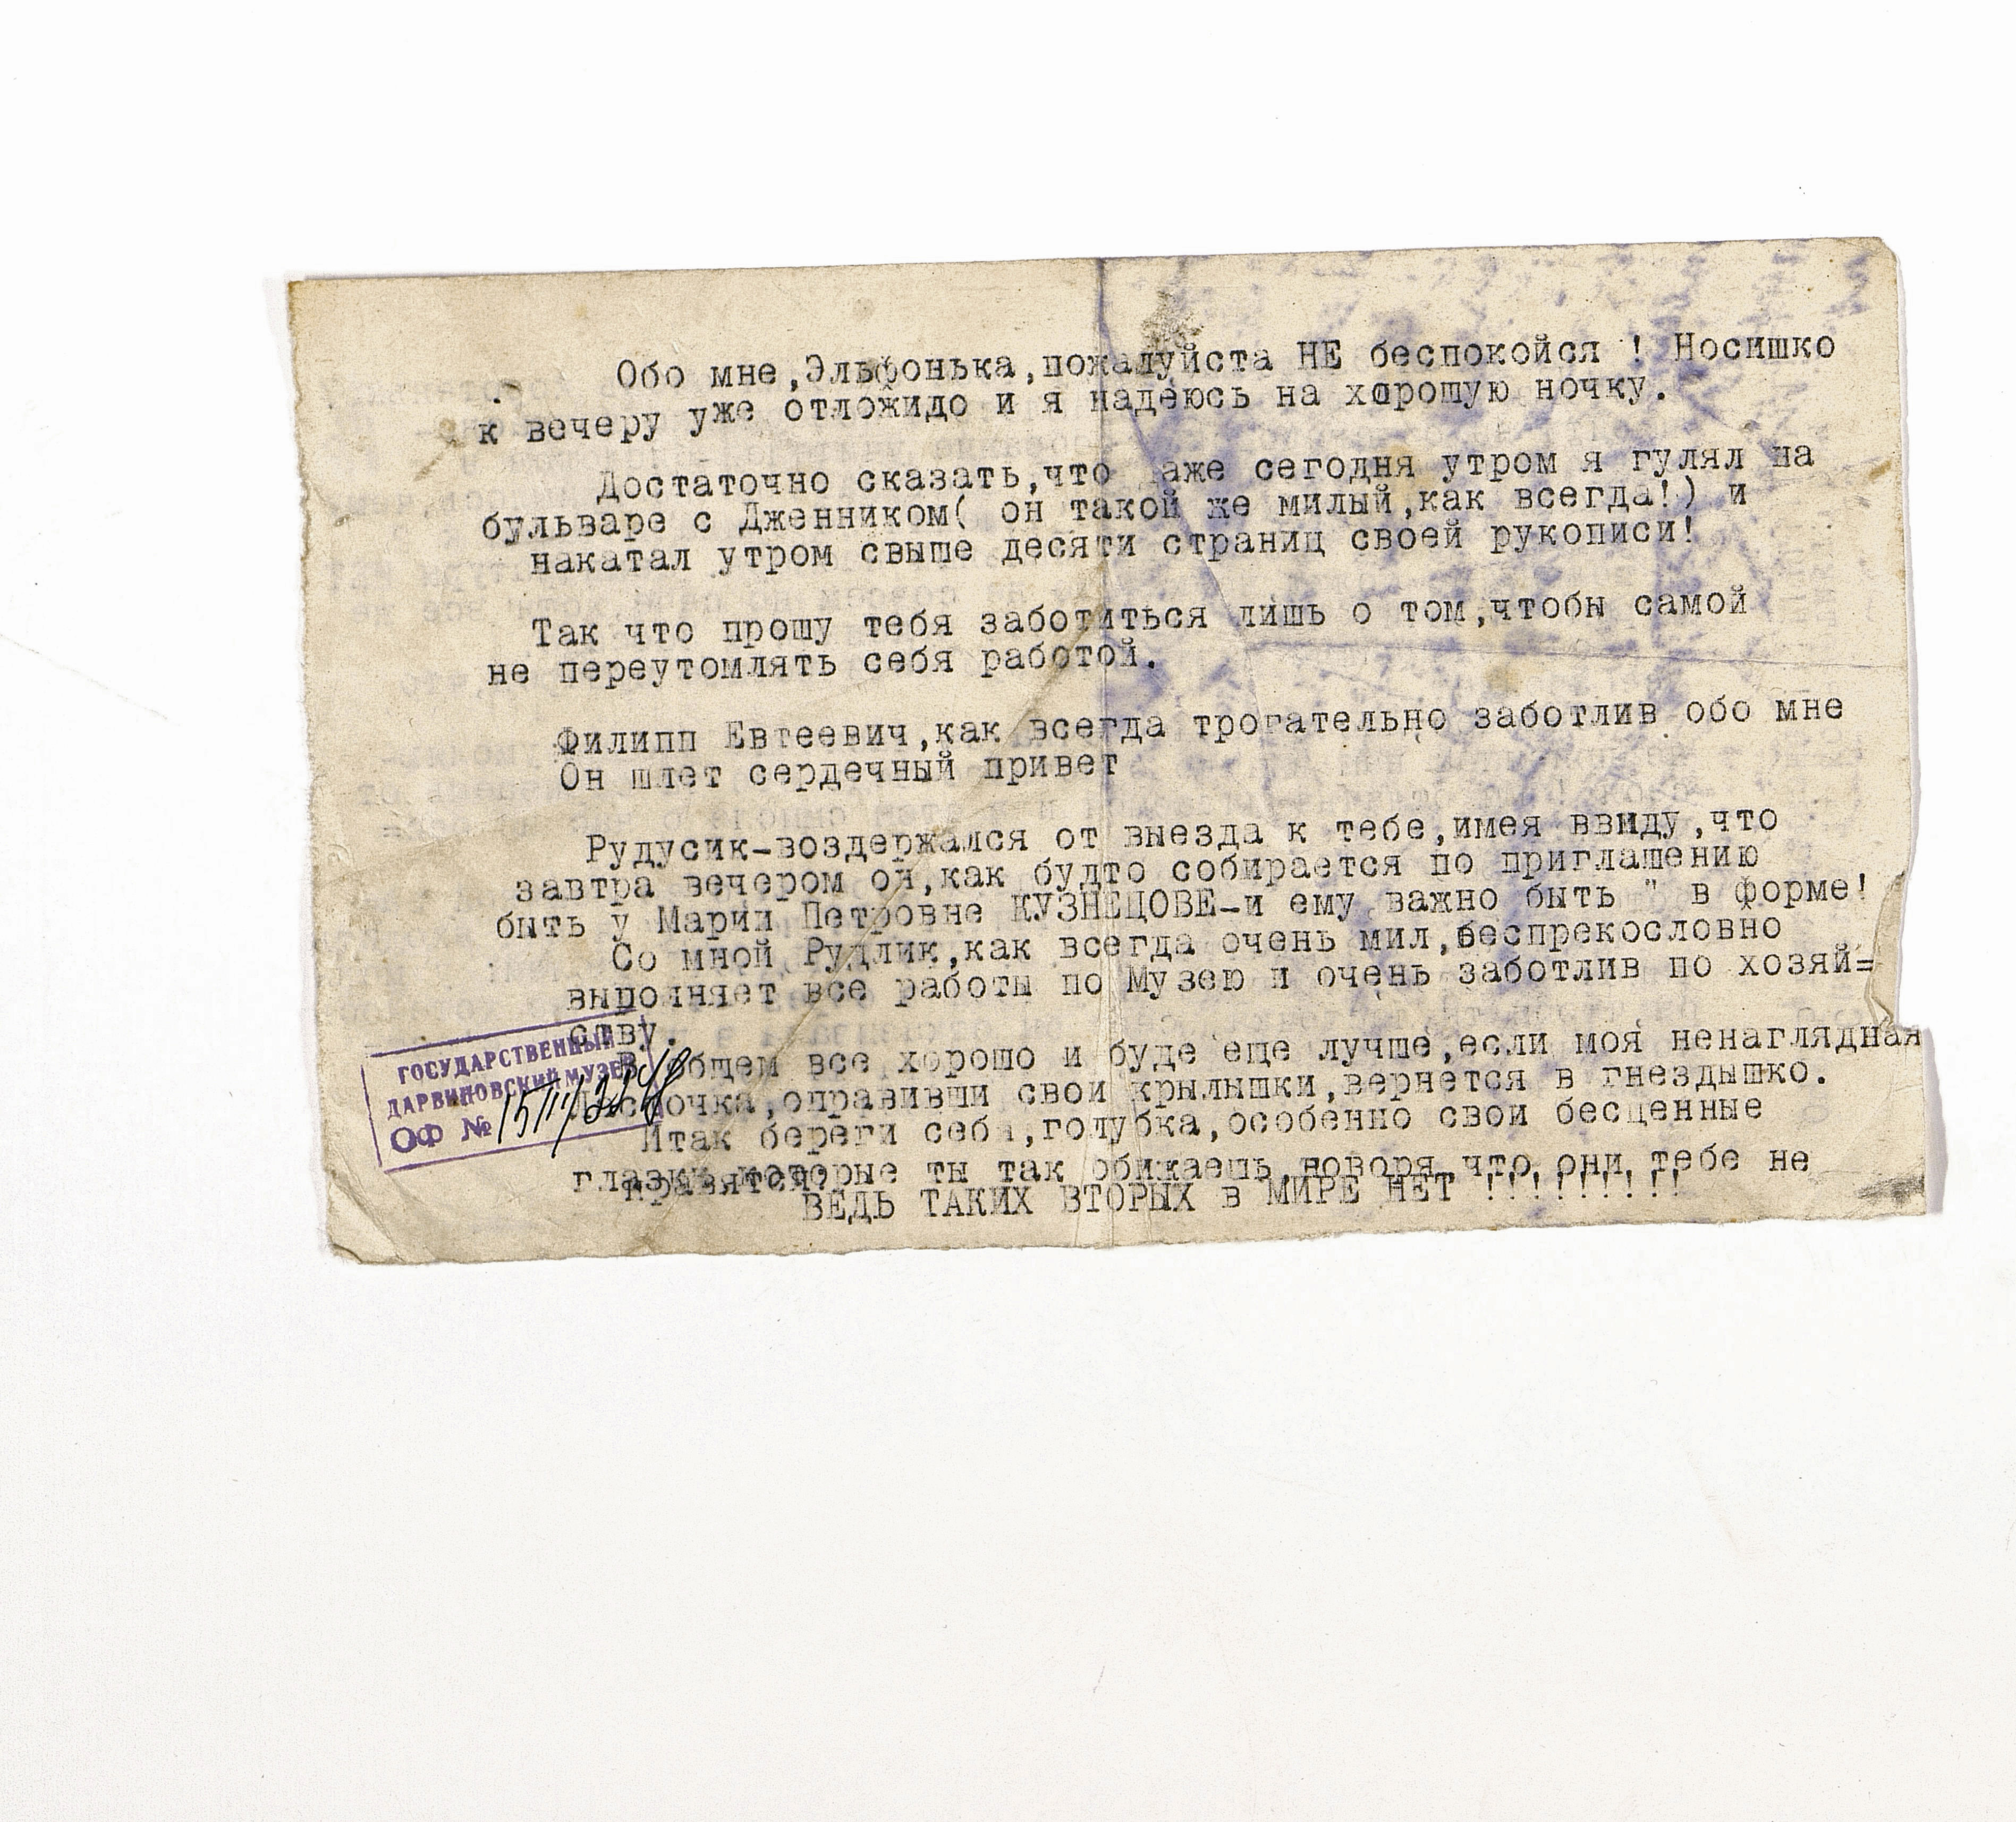 Обо мне,Эльфонька,пожалуйста НЕ беспокойся ! Носишко
к вечеру уже отложидо и я надеюсь на хорошую ночку.
Достаточно сказать,что аже сегодня утром я гулял на
бульваре с Дженником( он такой же милый,как всегда!) и
накатал утром свыше десяти страниц своей рукописи!
Так что прошу тебя заботиться лишь о том,чтобы самой
не переутомлять себя работой.
Филипп Евтеевич,как всегда трогательно заботлив обо мне
Он шлет сердечный привет
Рудусик-воздержался от выезда к тебе,имея ввиду,что
завтра вечером он,как будто собирается по приглашению
быть у Марии Петровне КУЗНЕЦОВЕ-и ему важно быть " в форме!
Со мной Рудлик,как всегда очень мил,беспрекословно
выполняет все работы по Музею и очень заботлив по хозяй=
ству.
В общем все хорошо и буде еще лучше,если моя ненаглядная
Ласточка,оправивши свои крылышки,вернется в гнездышко.
Итак береги себя,голубка,особенно свои бесценные
глазки которые ты так обижаешь,говоря,что они тебе не
нравятся!
ВЕДЬ ТАКИХ ВТОРЫХ в МИРЕ НЕТ !!!!!!!!!
ГОСУДАРСТВЕННЫЙ
ДАРВИНОВСКИЙ МУЗЕЙ
ОФ №